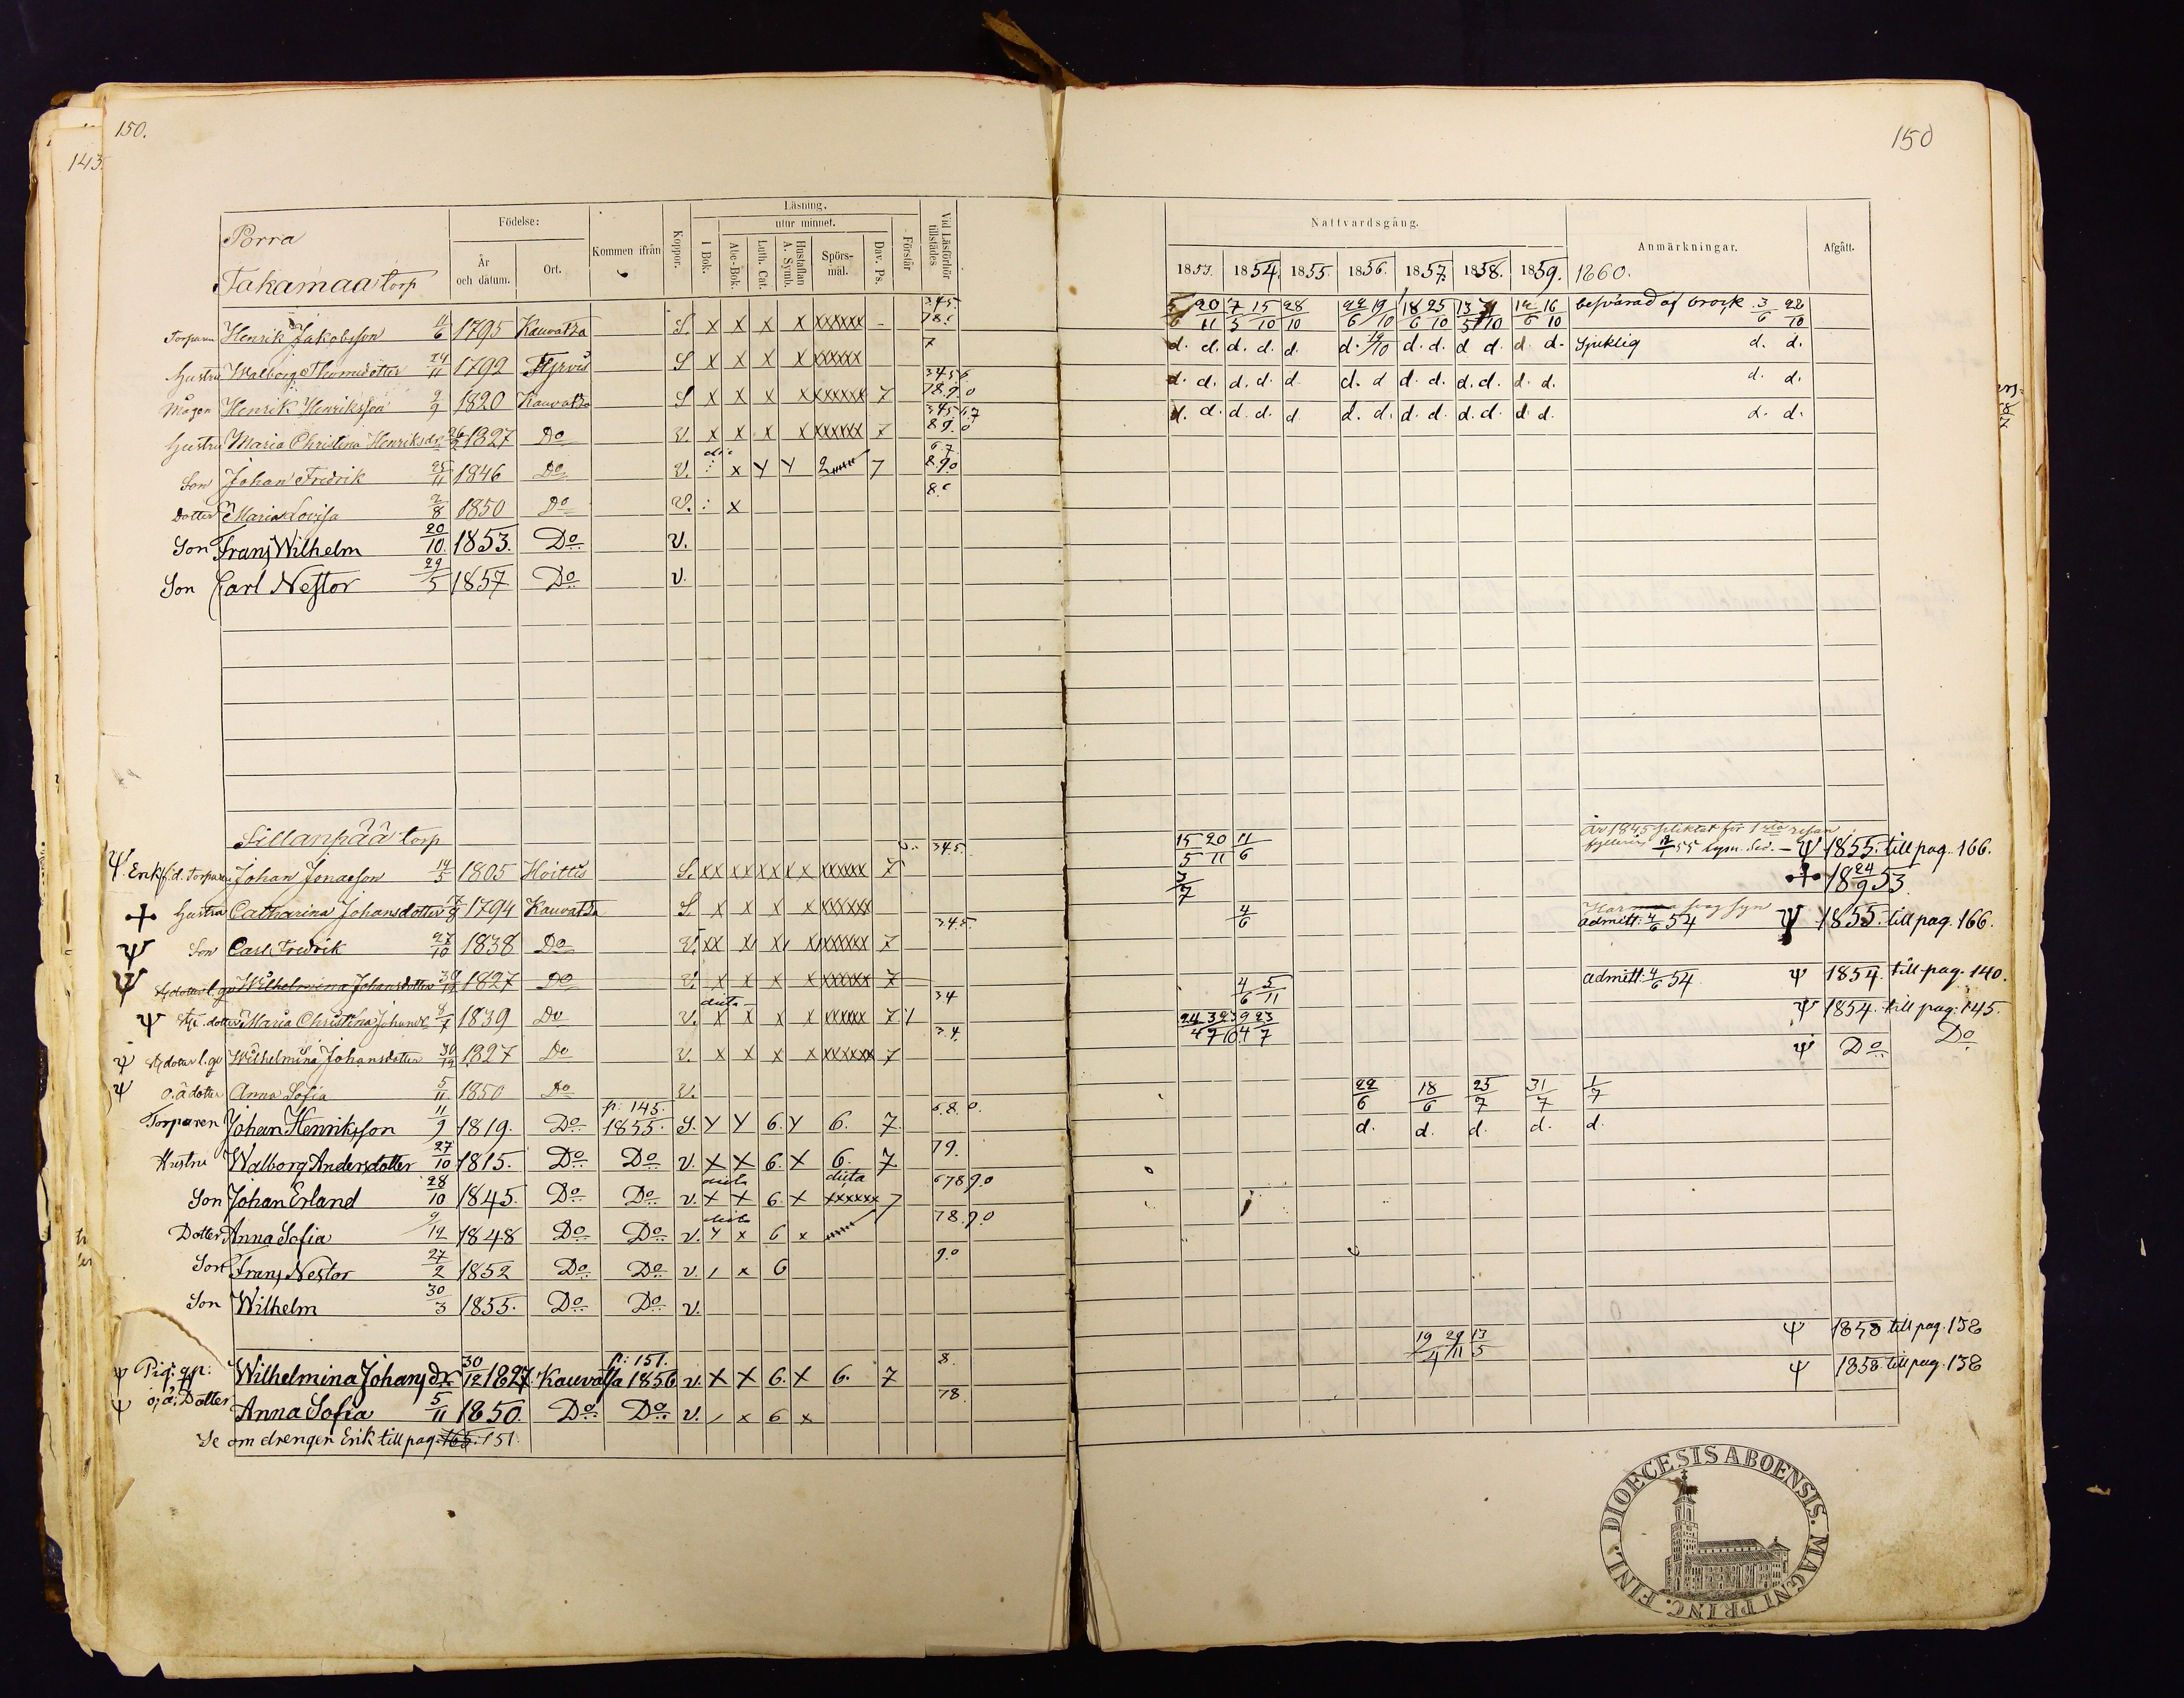 150.
143.
Porra
Takamaa torp
Födelse:
År och datum.
Ort.
Kommen ifrån
Koppor.
Läsning.
I Bok.
utur minnet.
Abc-Bok.
Luth. Cat.
Hustaflan A. Symb.
Spörs-mål.
Dav. Ps.
Förstår
Vid Läsförhör tillstädes
Torparen Henrik Jakobsson 11/6 1795 Kauvatsa S. x x x x xxxxxx - 3 4 5 7 8.
Hustru Walborg Thomædotter 24/11 1792 Tyrvis S x x x x xxxxxx 7
Mågen Henrik Henriksson 2/9 1820 Kauvatsa S x x x x xxxxxx 7 3 4 5 6 7 8 9 0
Hustru Maria Christina Henriksdr 26/2 1827 Do V. x x x x xxxxxx 7 3 4 5 6 7 8 9. 0
Son Johan Fredrik 25/11 1846 Do V. x y y 7 6. 7. 8 9 0
Dotter Maria Lovisa 2/8 1850 Do V. : x 8.
Son Franz Wilhelm 20/10 1853. Do V.
Son Carl Nestor 29/5 1857 Do V.
Sillanpää torp
Ψ. Erik f.d. Torparen Johan Jonasson 14/5 1805 Hvittis S. xx xx xx xx xxxxxx 7 3 4 5.
Hustru Catharina Johansdotter 1794 Kauvatsa S. x x x x xxxxxx
Ψ Son Carl Fredrik 27/10 1838 Do V. xx x x x xxxxxx 7 3 4 5.
Ψ Wilhelmina Johansdotter 30/12 1827 Do V. x x x x xxxxxx 7
Ψ dotter Maria Christina Johansdr 4/7 1839 Do V. x x x x xxxxxx 7 3 4
Ψ Wilhelmina Johansdotter 30/12 1827 Do V. x x x x xxxxxx 7 3. 4.
Ψ o.ä dotter Anna Sofia 5/11 1850 Do V.
Torparen Johan Henriksson 11/9 1819. Do p: 145. 1855. S. y y 6. y 6. 7. 6. 8. 0.
Hustru Walborg Andersdotter 27/10 1815. Do Do V. x x 6. x 6. 7 7 9.
Son Johan Erland 28/10 1845. Do Do V. x x 6. x xxxxxx 7 6 7 8 9. 0
Dotter Anna Sofia 9/12 1848 Do Do V. y x 6 x 7 8. 9. 0
Son Franz Nestor 27/2 1852 Do Do V. / x 6 9. 0
Son Wilhelm 30/3 1855. Do Do V.
Ψ Pig: qp: Wilhelmina Johansdr 30/12 1827. Kauvatsa p: 151. 1856 V. x x 6. x 6. 7 8.
Ψ o; ä; Dotter Anna Sofia 5/11 1850. Do Do V. / x 6 x 7 8
Se om drengen Erik till pag. 165. 151.
150
Nattvardsgång.
1853. 1854. 1855. 1856. 1857. 1858. 1859. 1860.
Anmärkningar.
Afgått.
5/6 20/11 7/5 15/10 28/10 22/6 19/10 18/6 25/10 13/5 31/10 12/6 16/10 besvärad af bråck 3/6 28/10
d. d. d. d. d. d. 19/10 d. d. d d. d. d. Sjuklig d. d.
d. d. d. d. d. d. d d. d. d. d. d. d. d. d.
d. d. d. d. d d. d. d. d. d. d. d. d. d. d.
15/5 20/11 11/6 År 1845 pliktat för 1sta resan fylleri Ψ 1855. till pag. 166.
3/7 18 24/9 53.
4/6 admitt: 4/6 54 Ψ 1855. till pag. 166.
4/6 5/11 admitt: 4/6 54. Ψ 1854. till pag. 140.
Ψ 1854. till pag: 145.
Ψ Do Do
22/6 18/6 25/7 31/7 1/7
d. d. d. d. d.
19/4 29/11 13/5 Ψ 1858 till pag. 158
Ψ 1858 till pag. 158
DIOECESIS ABOENSIS. MAGNI PRINC. FINL.